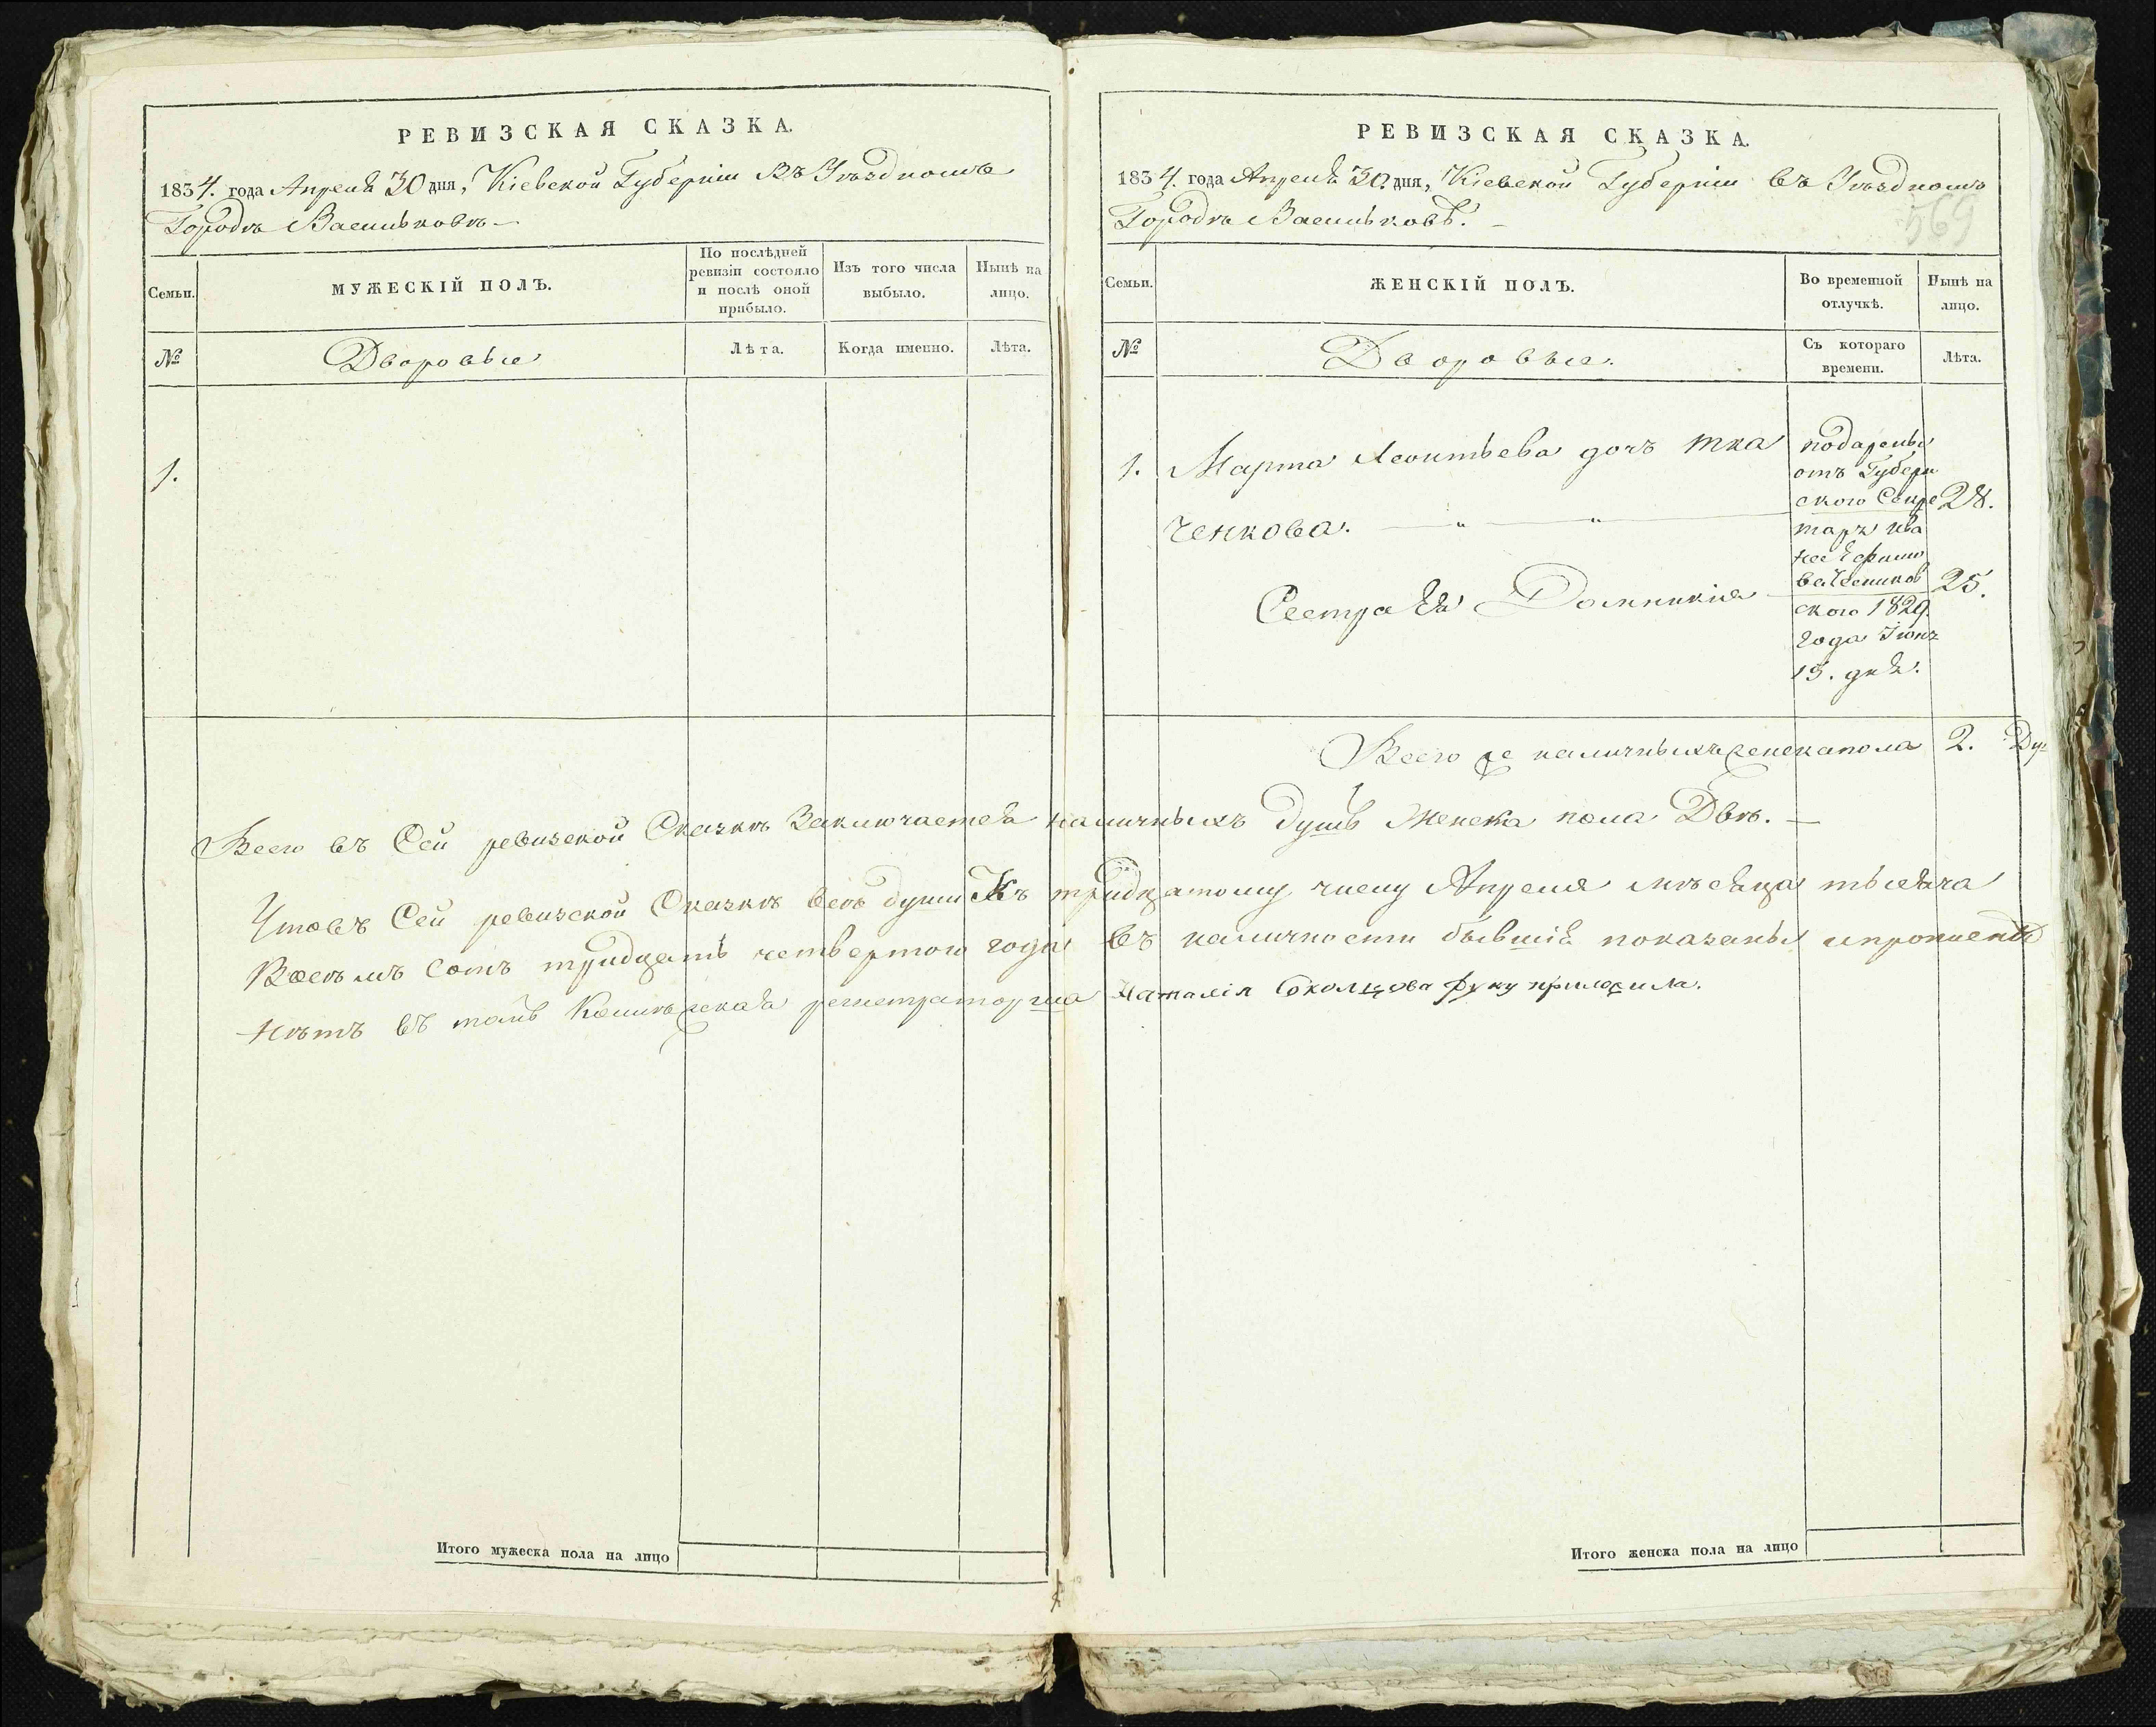 РЕВИЗСКАЯ СКАЗКА.
1834. года Апреля 30 дня, Кіевской Губерніи Въ Уѣздномъ
Городѣ Василькове
Семьи.
МУЖЕСКІЙ ПОЛЪ.
По послѣдней
ревизіи состояло
и послѣ оной
прибыло.
Изъ того числа
выбыло.
Нынѣ на
лицо.
№
Дворовые
Лѣта.
Когда именно.
Лѣта.
1.
Итого мужеска пола на лицо
РЕВИЗСКАЯ СКАЗКА.
1834. года Апреля 30. дня, Кіевской Губерніи въ Уѣздномъ
Городѣ Васильковѣ.
569
Семьи.
ЖЕНСКІЙ ПОЛЪ.
Во временной
отлучкѣ.
Нынѣ на
лицо.
№
Дворовые.
Съ котораго
времени.
Лѣта.
1. Марта Леонтьева дочь Тка
ченкова. 28.
Сестра Ея Домникія 25.
подарены
отъ Губерн
ского Секре
таря Ива
ского 1829.
года Іюня
15. дня.
Всего же наличныхъ женска пола 2. Ду
Всего въ Сей ревизской Сказкѣ Заключается наличныхъ душъ Женска пола Двѣ.
Что въ Сей ревизской Сказкѣ всѣ души Къ тридцатому числу Апреля мѣсяца тысяча
Восѣмъ Сотъ тридцать четвертого года въ наличности бывшія показаны и
нѣтъ въ томъ Колѣжская регистраторша Наталія Соколцова руку приложила.
Итого женска пола на лицо